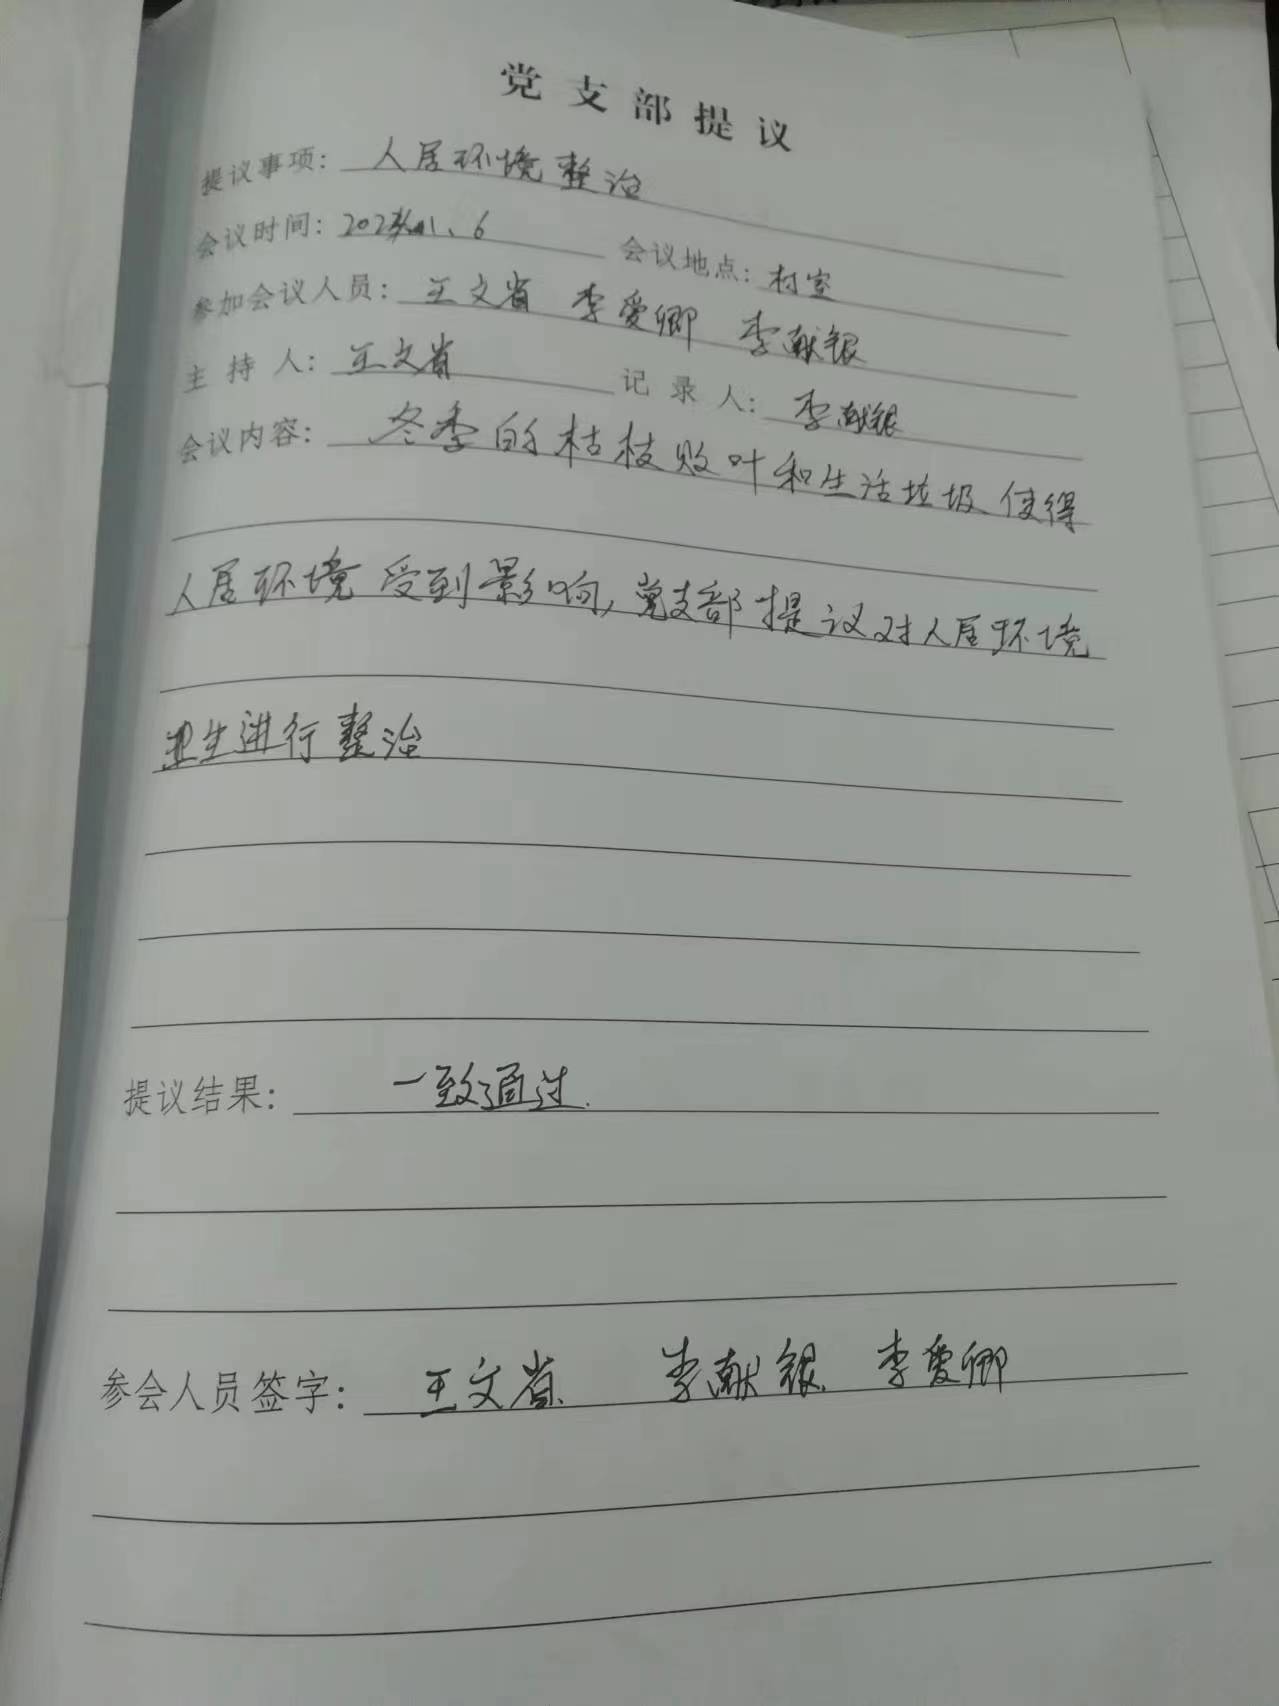 党支部提议
提议事项：人居环境整治
会议时间：202 .1、6 会议地点：村室
参加会议人员：王文省 李爱卿 李献银
主持人：王文省 记录人：李献银
会议内容：冬季的枯枝败叶和生活垃圾使得
人居环境受到影响，党支部提议对人居环境
卫生进行整治
提议结果：一致通过.
参会人员签字：王文省 李献银 李爱卿